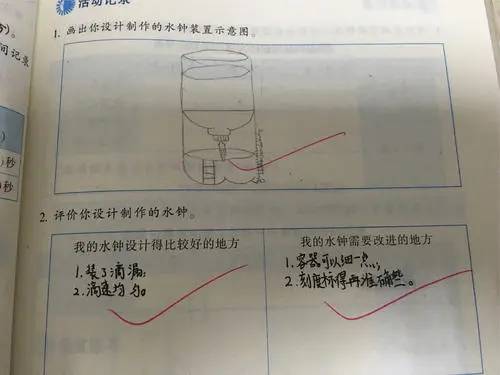 活动记录
分)。
1. 画出你设计制作的水钟装置示意图。
间记录
)
)秒
)秒
2. 评价你设计制作的水钟。
我的水钟设计得比较好的地方
我的水钟需要改进的地方
1.装了滴漏。
2.滴速均匀。
1.容器可以细一点。
2.刻度标得再准确些。